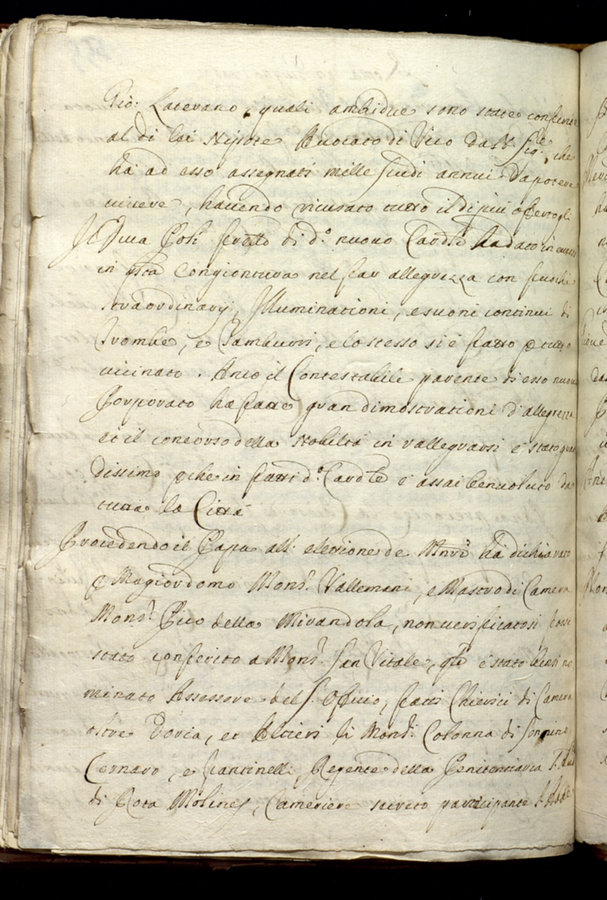 Gio: Laterano, quali ambidue sono state conferite
al di lui Nipote Avocato di Vico da S. Sig.re, che
ha ad esso assegnati mille scudi annui da potere
vivere, havendo ricusato tutto il di più offertogli
Il Duca fratello di d.o nuovo Card.le ha dato in
in q.sta congiontura nel far allegrezza con fuochi
straordinarij, Illuminationi, e suoni continui di
Trombe, e Tamburri, e lo stesso si è fatto p tutto
vicinato. Anco il Contestabile parente di esso nuovo
Porporato ha fatte gran dimostrationi d'allegrezza
et il concorso della Nobiltà in rallegrarsi è stato gran
dissimo p che in fatti d.o Card.le è assai benvoluto da
tutta la Città
Procedendo il Papa all' elezzione de Ministri ha dichiarato
p Magiordomo Mons.r Vallemani, e Mastro di Camera
Mons.r Pico della Mirandola, non verificatosi fosse
stato conferito a Mons.r San Vitale, q.le è stato bensì no
minato Assessore del S. Offitio, fatti Chierici di Camera
oltre Doria, et Altieri li Mons.ri Colonna di Sonnino
Cornaro, e Scantinelli, Regente della Penitentiaria
di Rota Molines, Cameriere secreto participante